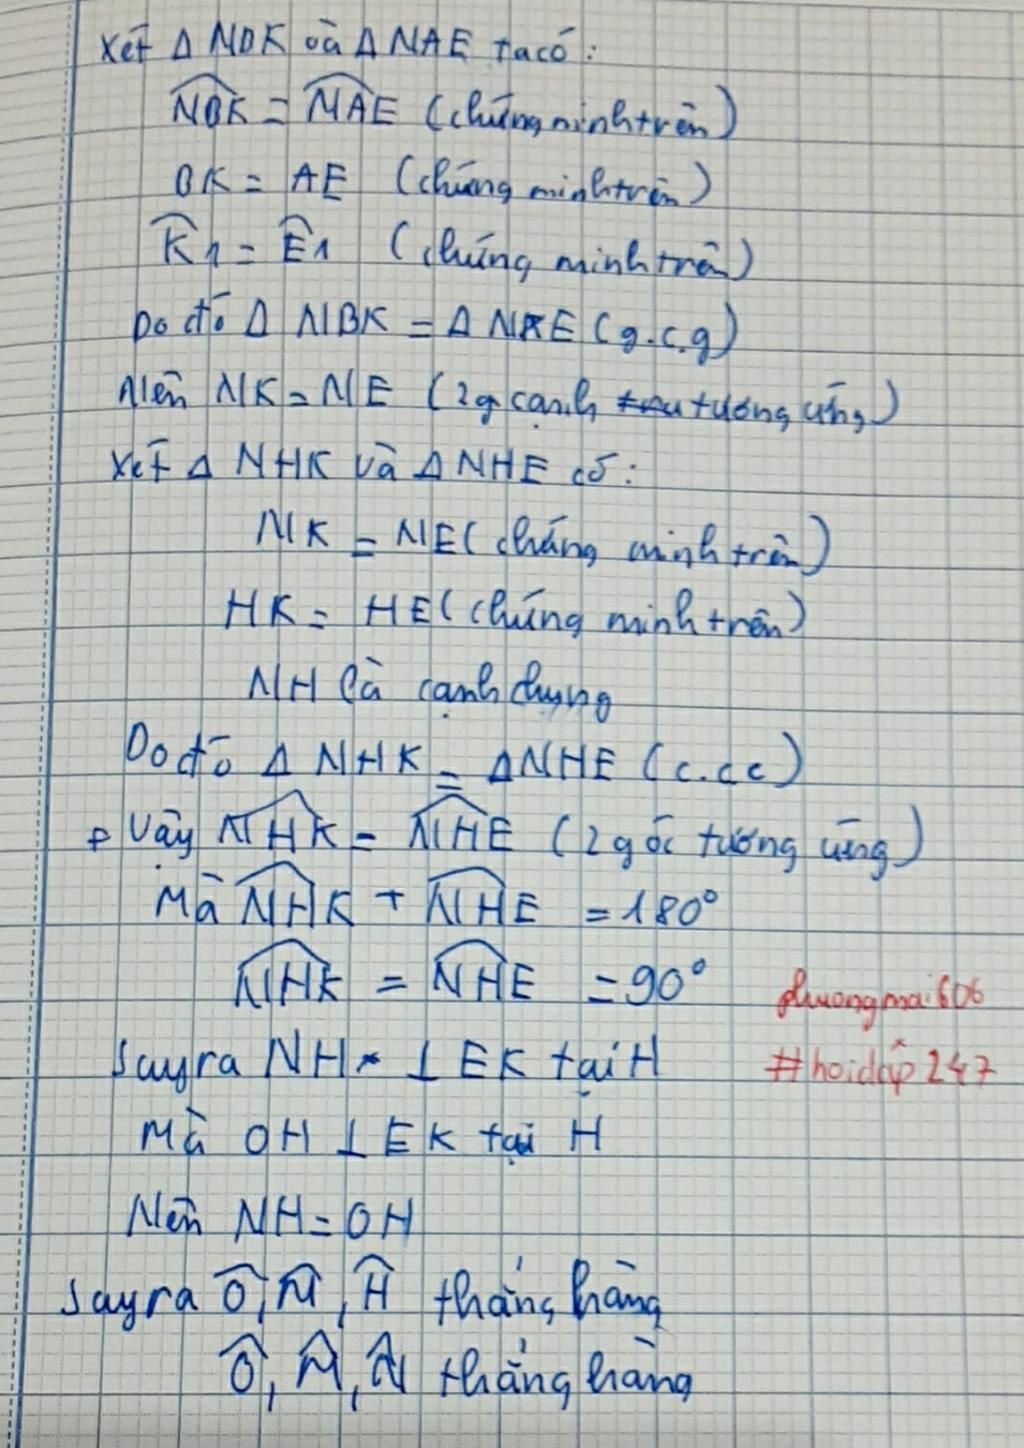 Xét Δ NBK và Δ NAE ta có:
NBK = NAE (chứng minh trên)
BK = AE (chứng minh trên)
K1 = E1 (chứng minh trên)
Do đó Δ NBK = Δ NAE (g.c.g)
Nên NK = NE (2g cạnh tương ứng)
Xét Δ NHK và Δ NHE có:
NK = NE (chứng minh trên)
HK = HE (chứng minh trên)
NH là cạnh chung
Do đó Δ NHK = ΔNHE (c.c.c)
Vậy NHK = NHE (2 góc tương ứng)
Mà NHK + NHE = 180°
NHK = NHE = 90°
phuongmai606
Suy ra NH ⊥ EK tại H
#hoidap247
Mà OH ⊥ EK tại H
Nên NH = OH
Suy ra O, N, H thẳng hàng
O, M, N thẳng hàng